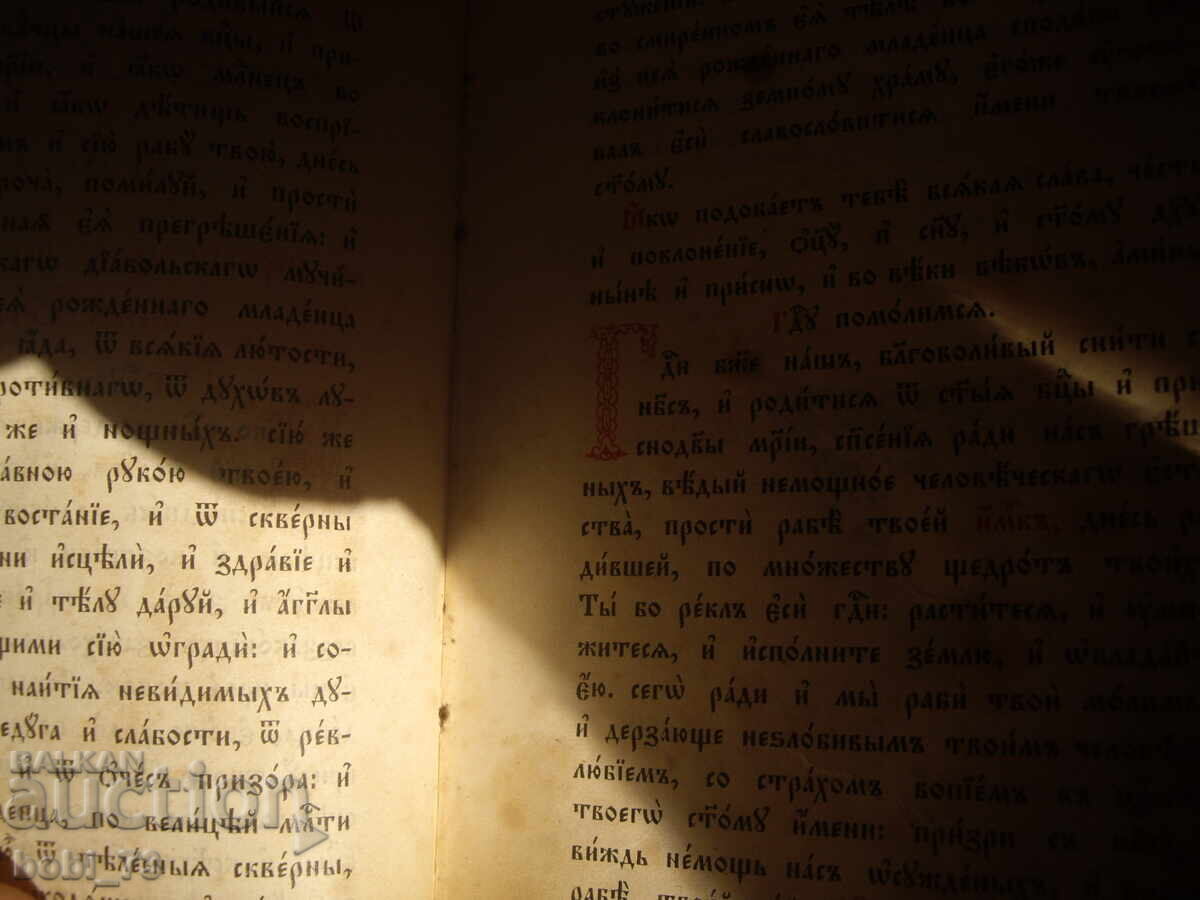 родивыйсѧ ѿ
нашеѧ бц҃ы, и҆ при-
и҆ ꙗ҆́кѡ мл҃нецъ во
и҆ ꙗ҆́кѡ дѣ́тищь воспрї-
и҆ сїю̀ рабꙋ̀ твою̀, дне́сь
поми́лꙋй, и҆ простѝ
є҆ѧ̀ прегрѣшє́нїѧ: и҆
дїа́вольскагѡ мꙋчи́-
рожде́ннаго младе́нца
ꙗ҆́да, ѿ всѧ́кїѧ лю́тости,
ѿ дꙋхѡ́въ лꙋ-
же и҆ нощны́хъ. сїю́ же
рꙋко́ю твое́ю, и҆
воста́нїе, и҆ ѿ скве́рны
и҆сцѣлѝ, и҆ здра́вїе и҆
и҆ тѣ́лꙋ да́рꙋй, и҆ а҆́гг҃лы
сїю̀ ѡ҆градѝ: и҆ со-
наи́тїѧ неви́димыхъ дꙋ-
и҆ сла́бости, ѿ ре́в-
и҆ ѿ ѻ҆че́съ призо́ра: и҆
по вели́цѣй мл҃ти
ѿ тѣле́сныѧ скве́рны,
во смире́нномъ є҆ѧ̀ тѣ́лѣ
и҆з̾ неѧ̀ рожде́ннаго младе́нца сподо́би
клони́тисѧ земно́мꙋ хра́мꙋ, є҆го́же
валъ є҆сѝ славосло́витисѧ и҆́мени
ст҃о́мꙋ.
Ꙗ҆́кѡ подоба́етъ тебѣ̀ всѧ́каѧ сла́ва, че́сть
и҆ поклоне́нїе, ѻ҆ц҃ꙋ̀, и҆ сн҃ꙋ, и҆ ст҃о́мꙋ дꙋ́-
ны́нѣ и҆ при́снѡ, и҆ во вѣ́ки вѣкѡ́въ, а҆ми́нь.
Гдⷭ҇ꙋ помо́лимсѧ.
Гдⷭ҇и бж҃е на́шъ, благоволи́вый сни́ти
нб҃съ, и҆ роди́тисѧ ѿ ст҃ы́ѧ бц҃ы и҆ при-
снодв҃ы мр҃і́и, сп҃се́нїѧ ра́ди на́съ грѣ́ш-
ныхъ, вѣ́дый немощно́е человѣ́ческагѡ є҆сте-
ства̀, простѝ рабѣ̀ твое́й и҆мⷬ҇къ, дне́сь ро-
ди́вшей, по мно́жествꙋ щедро́тъ твои́хъ.
Ты́ бо ре́клъ є҆сѝ гдⷭ҇и: расти́тесѧ, и҆ ᲂу҆мно́-
житесѧ, и҆ и҆спо́лните зе́млю, и҆ ѡ҆блада́й-
є҆́ю. сегѡ̀ ра́ди и҆ мы̀ рабѝ твоѝ мо́лимсѧ
и҆ дерза́юще неѕло́бивымъ твои́мъ человѣко-
лю́бїемъ, со стра́хомъ вопїе́мъ къ
твоегѡ̀ ст҃о́мꙋ и҆́мени: при́зри съ нб҃сѐ
ви́ждь не́мощь на́съ ѡ҆сꙋжде́ныхъ, и҆
рабѣ̀
BALKAN
auction
bobi_78